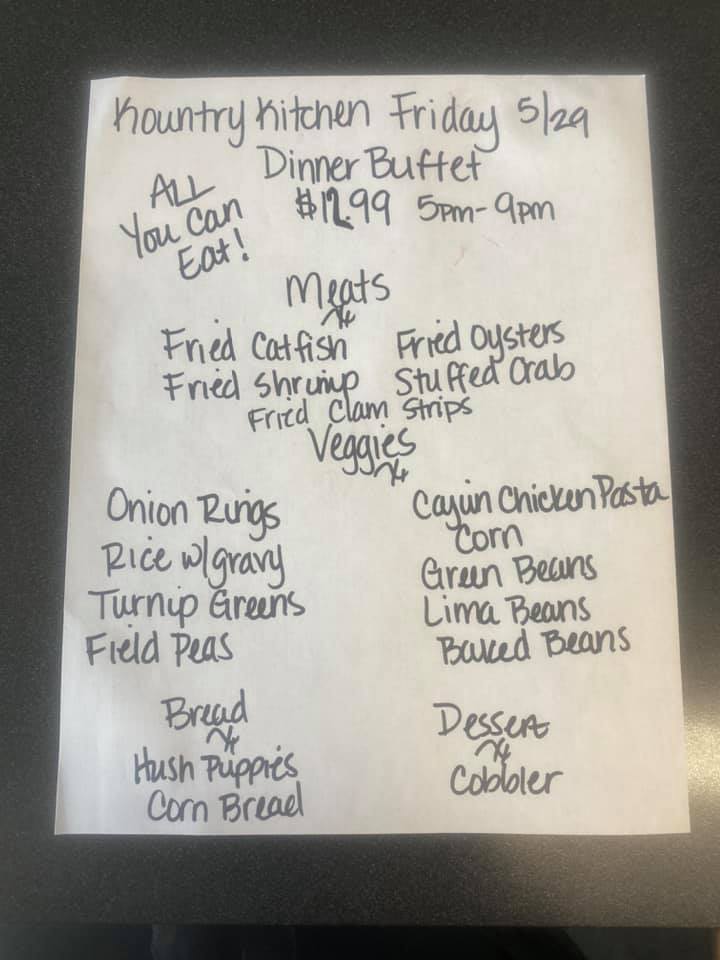 Kountry Kitchen Friday 5/29
Dinner Buffet
ALL
You Can
Eat!
$12.99 5pm-9pm
Meats
Fried Catfish Fried Oysters
Fried Shrimp Stuffed Crab
Fried Clam Strips
Veggies
Onion Rings
Rice w/gravy
Turnip Greens
Field Peas
Cajun Chicken Pasta
Corn
Green Beans
Lima Beans
Baked Beans
Bread
Hush Puppies
Corn Bread
Dessert
Cobbler